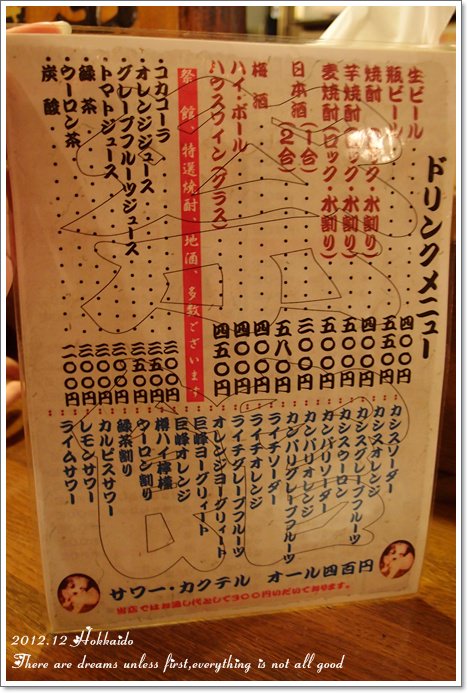 ドリンクメニュー
生ビール 四〇〇円
瓶ビール 五五〇円
焼酎(ロック・水割り) 四〇〇円
芋焼酎(ロック・水割り) 五〇〇円
麦焼酎(ロック・水割り) 五〇〇円
日本酒(一合) 三〇〇円
(2合) 五八〇円
梅酒 四〇〇円
ハイ・ボール 四〇〇円
ハウスワイン(グラス) 四五〇円
特選焼酎、地酒、多数ございます
コカコーラ 三〇〇円
オレンジジュース 三五〇円
グレープフルーツジュース 三五〇円
トマトジュース 三〇〇円
緑茶 三〇〇円
ウーロン茶 三〇〇円
炭酸 二〇〇円
カシスソーダー
カシスオレンジ
カシスグレープフルーツ
カシスウーロン
カンパリソーダー
カンパリオレンジ
カンパリグレープフルーツ
ライチソーダー
ライチオレンジ
ライチグレープフルーツ
オレンジヨーグリィート
巨峰ヨーグリィート
巨峰オレンジ
樽ハイ檸檬
ウーロン割り
緑茶割り
カルピスサワー
レモンサワー
ライムサワー
サワー・カクテル オール四百円
当店ではお通し代として300円いただいております。
2012.12 Hokkaido
There are dreams unless first,everything is not all good